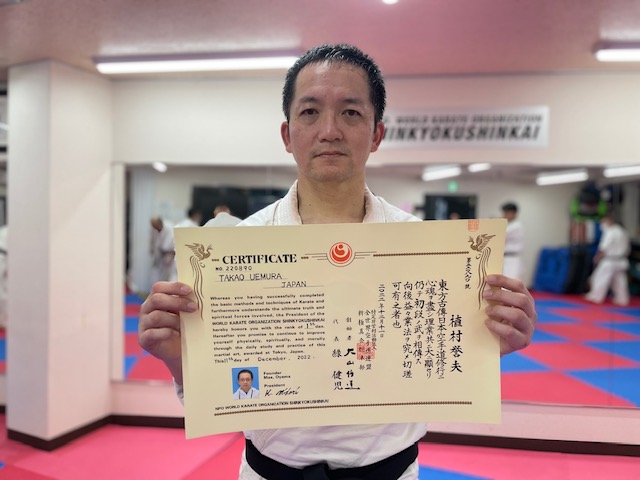 WORLD KARATE ORGANIZATION
SHINKYOKUSHINKAI
CERTIFICATE
NO. 220890
TAKAO UEMURA
JAPAN
Whereas you having successfully completed
the basic methods and techniques of Karate and
furthermore understands the ultimate truth and
spiritual forces involved, the President of the
WORLD KARATE ORGANIZATION SHINKYOKUSHINKAI
hereby honors you with the rank of 1st Dan.
Hereafter you promise to continue to improve
yourself physically, spiritually, and morally
through the daily study and practice of this
martial art, awarded at Tokyo, Japan.
This 11th day of December, 2022.
Founder
Mas. Oyama
President
K. Midori
NPO WORLD KARATE ORGANIZATION SHINKYOKUSHINKAI
植村誉夫
東方古傳日本空手道修行ニ
心魂ヲ盡シ理業共ニ大ニ顕ワル
仍テ初段ヲ武ヲ相傳ス
向後益々業法ヲ究メ切瑳
可有之者也
二〇二二年十二月十一日
全世界空手道連盟
新極真会総本部
創始者 大山倍達
代表 緑健児